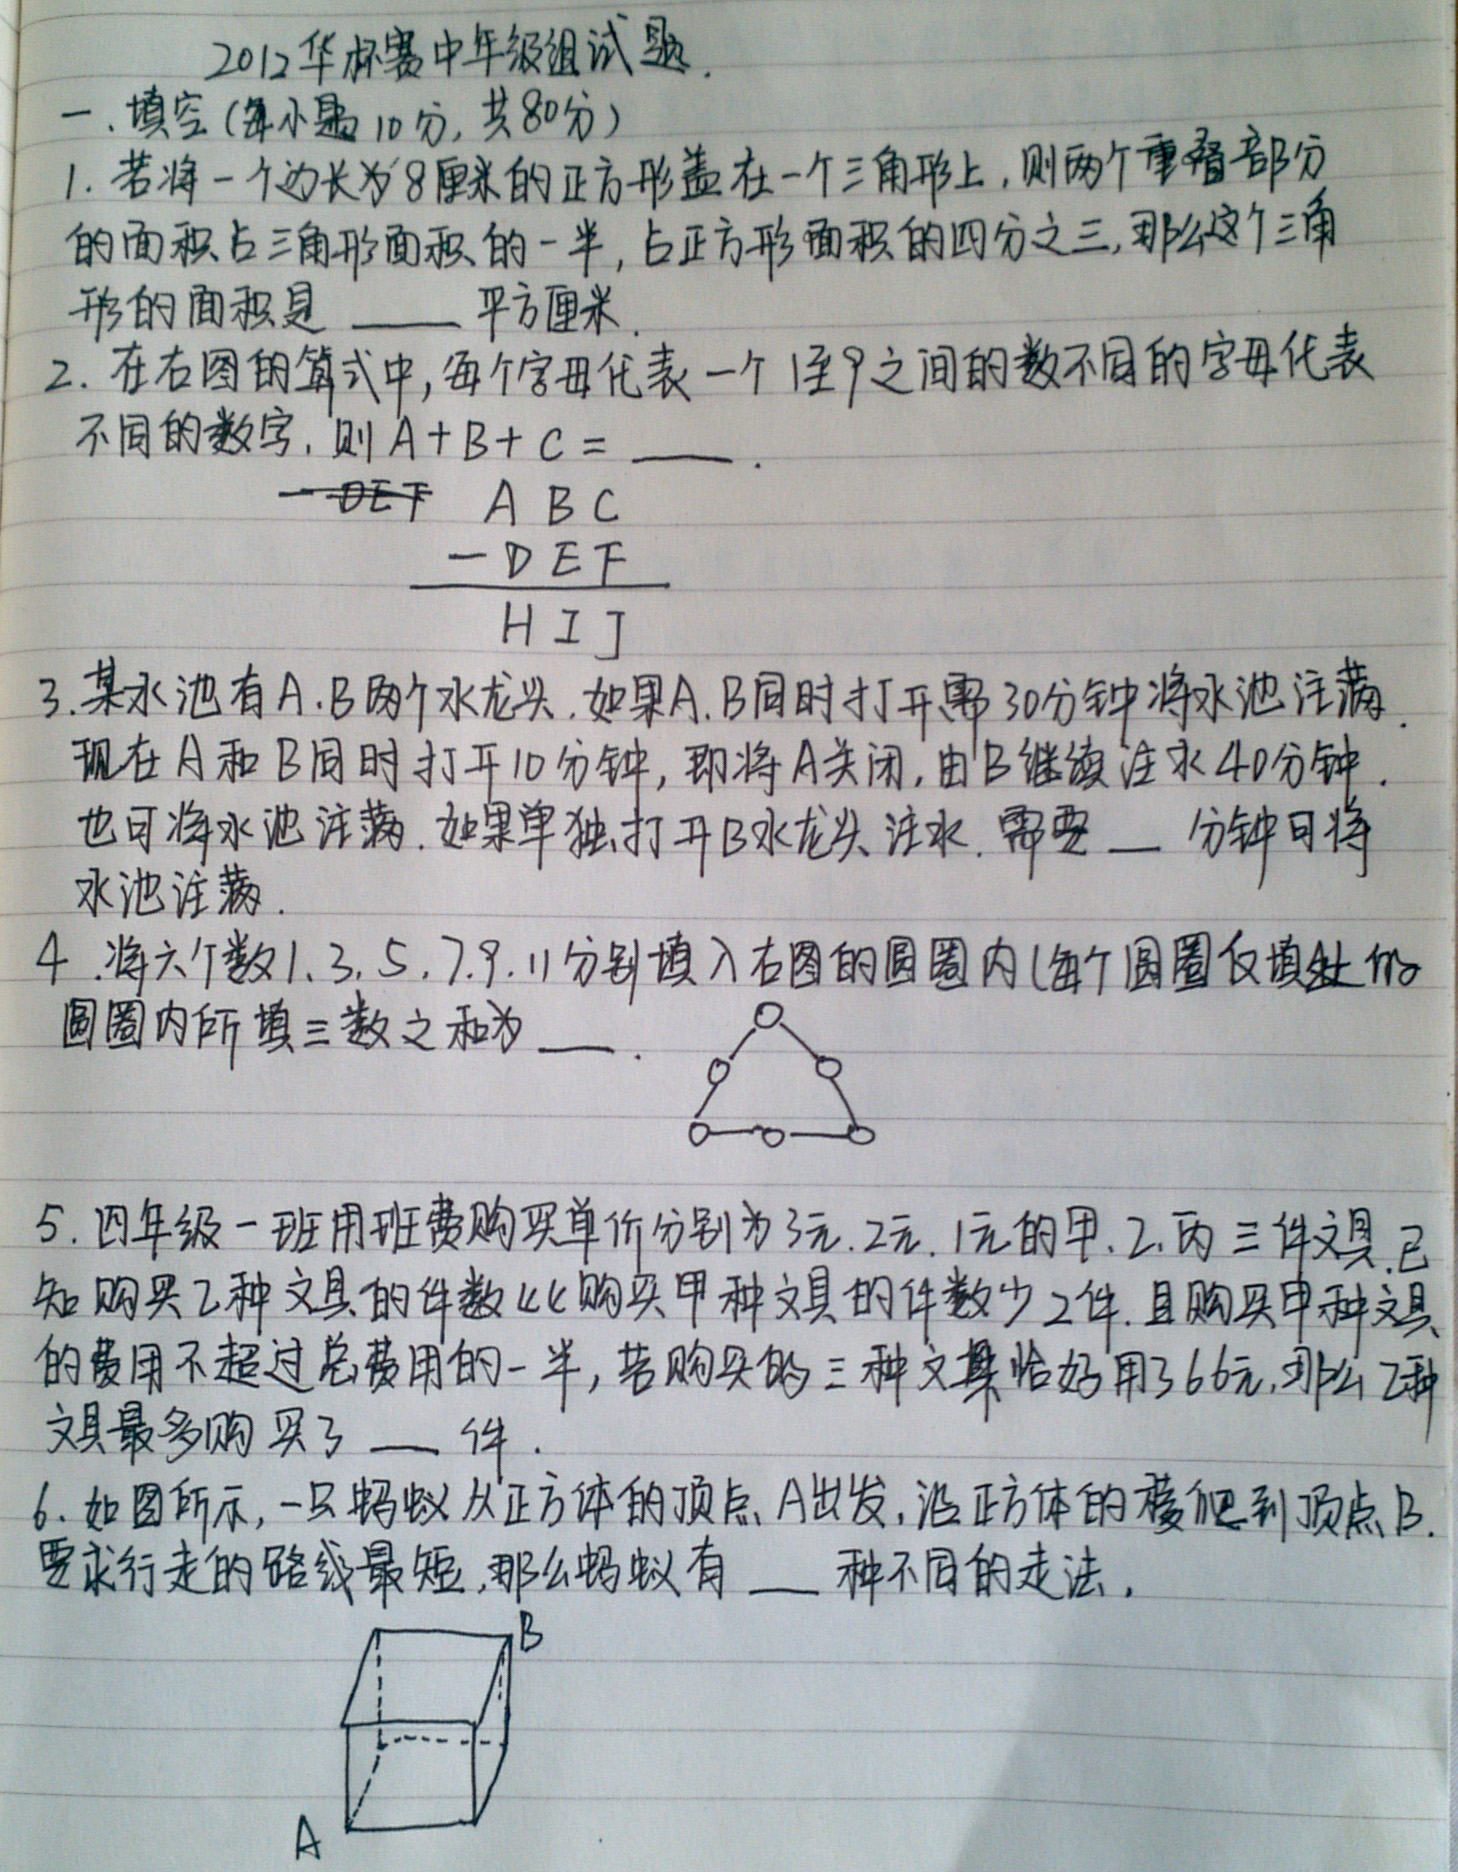 2012华杯赛中年级组试题.
一.填空(每小题10分,共80分)
1.若将一个边长为8厘米的正方形盖在一个三角形上,则两个重叠部分
的面积占三角形面积的一半,占正方形面积的四分之三,那么这个三角
形的面积是 ____ 平方厘米.
2.在右图的算式中,每个字母代表一个1至9之间的数不同的字母代表
不同的数字,则A+B+C= ____ .
A B C
- D E F
H I J
3.某水池有A.B两个水龙头.如果A.B同时打开需30分钟将水池注满.
现在A和B同时打开10分钟,即将A关闭,由B继续注水40分钟.
也可将水池注满.如果单独打开B水龙头注水.需要 __ 分钟可将
水池注满.
4.将六个数1、3、5、7、9、11分别填入右图的圆圈内(每个圆圈仅填
圆圈内所填三数之和为 ___ .
5.四年级一班用班费购买单价分别为3元.2元.1元的甲.乙.丙三件文具.已
知购买乙种文具的件数比购买甲种文具的件数少2件.且购买甲种文具
的费用不超过总费用的一半,若购买的三种文具恰好用了66元,那么乙种
文具最多购买了 ___ 件.
6.如图所示,一只蚂蚁从正方体的顶点A出发,沿正方体的棱爬到顶点B.
要求行走的路线最短,那么蚂蚁有 ___ 种不同的走法.
B
A